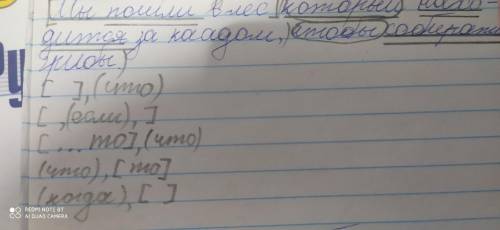 [Мы пошли в лес,(который нахо-
дится за каадом,)(чтобы собирать
грибы.)
[ ], (что)
[ ,(если), ]
[ ... то], (что)
(что), [то]
(когда), [ ]
REDMI NOTE 8T
AI QUAD CAMERA